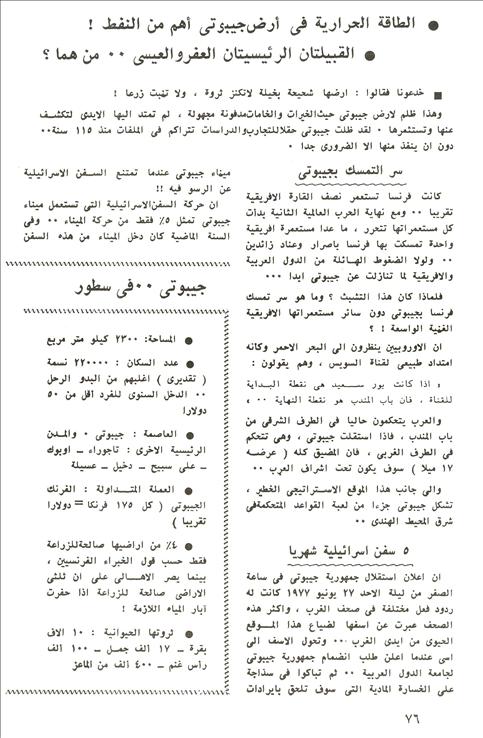 ● الطاقة الحرارية فى أرض جيبوتى أهم من النفط !
● القبيلتان الرئيسيتان العفر والعيسى ٠٠ من هما ؟
■ خدعونا فقالوا : ارضها شحيحة بخيلة لاتكنز ثروة ، ولا تنبت زرعا !
وهذا ظلم لارض جيبوتى حيث الخيرات والخامات مدفونة مجهولة ، لم تمتد اليها الايدى لتكشف
عنها وتستثمرها ٠ لقد ظلت جيبوتى حقلا للتجارب والدراسات تتراكم فى الملفات منذ ١١٥ سنة ٠٠
دون ان ينفذ منها الا الضرورى جدا ٠
سر التمسك بجيبوتى
كانت فرنسا تستعمر نصف القارة الافريقية
تقريبا ٠٠ ومع نهاية الحرب العالمية الثانية بدأت
كل مستعمراتها تتحرر ، ما عدا مستعمرة افريقية
واحدة تمسكت بها فرنسا باصرار وعناد زائدين
٠٠ ولولا الضغوط الهائلة من الدول العربية
والافريقية لما تنازلت عن جيبوتى ابدا ٠٠٠
فلماذا كان هذا التشبث ؟ وما هو سر تمسك
فرنسا بجيبوتى دون سائر مستعمراتها الافريقية
الغنية الواسعة ! ؟
ان الاوروبيين ينظرون الى البحر الاحمر وكانه
امتداد طبيعى لقناة السويس ، وهم يقولون :
« اذا كانت بور سعيد هى نقطة البداية
للقناة ، فان باب المندب هو نقطة النهاية ٠٠ »
والعرب يتحكمون حاليا فى الطرف الشرقى من
باب المندب ، فاذا استقلت جيبوتى ، وهى تتحكم
فى الطرف الغربى ، فان المضيق كله ( عرضه
١٧ ميلا ) سوف يكون تحت اشراف العرب ٠٠
والى جانب هذا الموقع الاستراتيجى الخطير ،
تشكل جيبوتى جزءا من لعبة القواعد المتحكمة فى
شرق المحيط الهندى ٠٠
٥ سفن اسرائيلية شهريا
ان اعلان استقلال جمهورية جيبوتى فى ساعة
الصفر من ليلة الاحد ٢٧ يونيو ١٩٧٧ كانت له
ردود فعل مختلفة فى صحف الغرب ، واكثر هذه
الصحف عبرت عن اسفها لضياع هذا الموقع
الحيوى من ايدى الغرب ٠٠ وتحول الاسف الى
اسى عندما اعلن طلب انضمام جمهورية جيبوتى
لجامعة الدول العربية ٠٠ ثم تباكوا فى سذاجة
على الخسارة المادية التى سوف تلحق بايرادات
ميناء جيبوتى عندما تمتنع السفن الاسرائيلية
عن الرسو فيه !!
ان حركة السفن الاسرائيلية التى تستعمل ميناء
جيبوتى تمثل ٥٪ فقط من حركة الميناء ٠٠ وفى
السنة الماضية كان دخل الميناء من هذه السفن
جيبوتى ٠٠ فى سطور
● المساحة: ٢٣٠٠ كيلو متر مربع
● عدد السكان : ٢٢٠٠٠٠ نسمة
( تقديرى ) اغلبهم من البدو الرحل
٠٠ الدخل السنوى للفرد اقل من ٥٠
دولارا
● العاصمة : جيبوتى ٠ والمدن
الرئيسية الاخرى : تاجوراء ــ اوبوك
ــ على سبيح ــ دخيل ــ عسيلة
● العملة المتداولة : الفرنك
الجيبوتى ( كل ١٧٥ فرنكا = دولارا
تقريبا )
● ٤٪ من اراضيها صالحة للزراعة
فقط حسب قول الخبراء الفرنسيين ،
بينما يصر الاهالى على ان ثلثى
الاراضى صالحة للزراعة اذا حفرت
آبار المياه اللازمة !
● ثروتها الحيوانية : ١٠ الاف
بقرة ــ ١٧ الف جمل ــ ١٠٠ الف
رأس غنم ــ ٤٠٠ الف من الماعز
٧٦